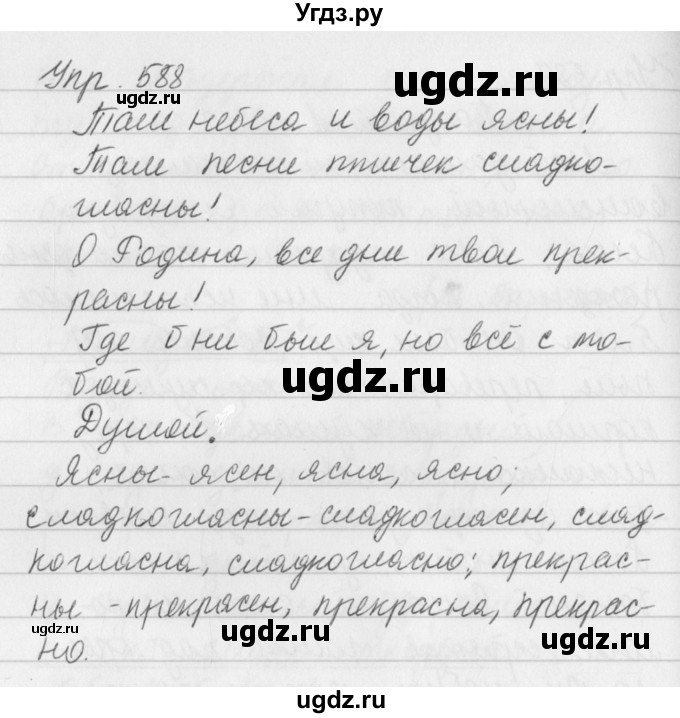 Угдз.ру
Упр. 588
ugdz.ru
ugdz.ru
Там небеса и воды ясны!
Там песни птичек сладко-
гласны!
О Родина, все дни твои прек-
расны!
Где б ни был я, но всё с то-
бой
ugdz.ru
Душой.
Ясны - ясен, ясна, ясно;
сладкогласны - сладкогласен, слад-
когласна, сладкогласно; прекрас-
ны - прекрасен, прекрасна, прекрас-
но.
ugdz.ru
ugdz.ru
ugdz.ru
ugdz.ru